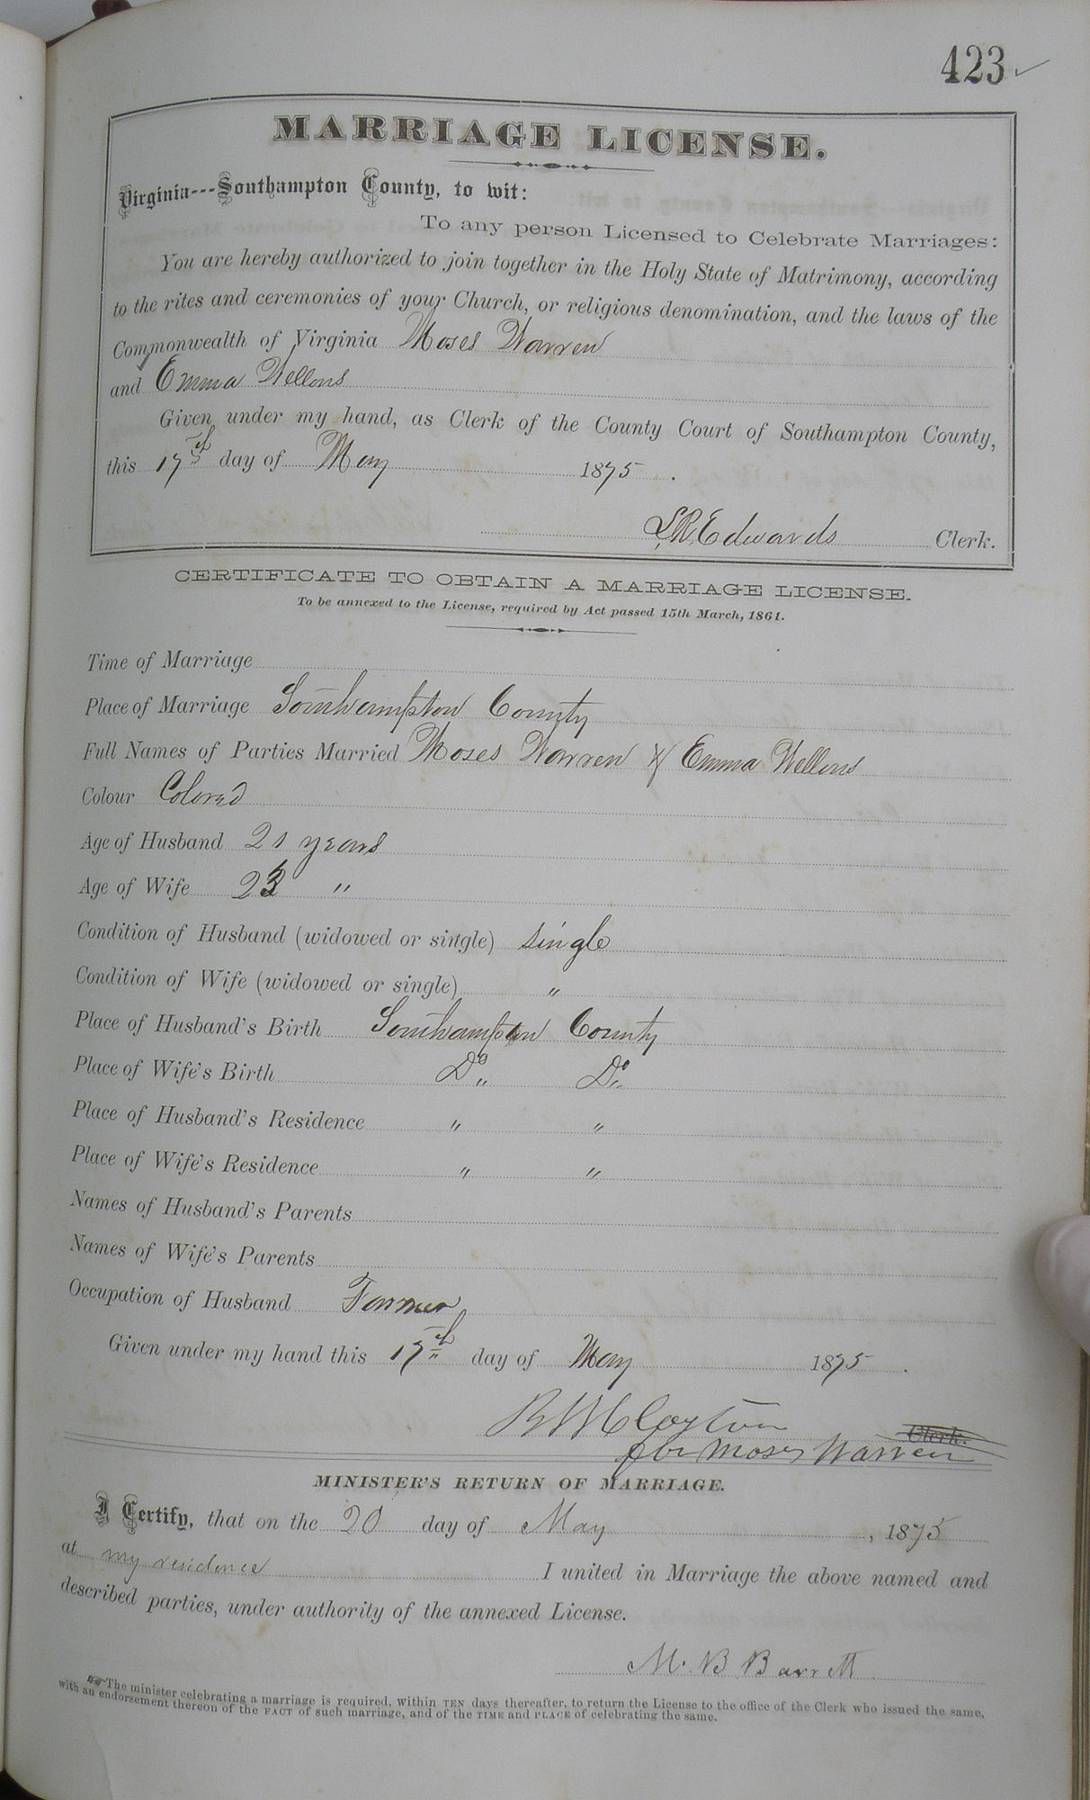 423
MARRIAGE LICENSE.
Virginia---Southampton County, to wit:
To any person Licensed to Celebrate Marriages:
You are hereby authorized to join together in the Holy State of Matrimony, according
to the rites and ceremonies of your Church, or religious denomination, and the laws of the
Commonwealth of Virginia Moses Warren
and Emma Wellons
Given under my hand, as Clerk of the County Court of Southampton County,
this 17th day of May 1875.
L.R. Edwards Clerk.
CERTIFICATE TO OBTAIN A MARRIAGE LICENSE.
To be annexed to the License, required by Act passed 15th March, 1861.
Time of Marriage
Place of Marriage Southampton County
Full Names of Parties Married Moses Warren & Emma Wellons
Colour Colored
Age of Husband 21 years
Age of Wife 23 "
Condition of Husband (widowed or single) single
Condition of Wife (widowed or single) "
Place of Husband's Birth Southampton County
Place of Wife's Birth Do Do
Place of Husband's Residence " "
Place of Wife's Residence " "
Names of Husband's Parents
Names of Wife's Parents
Occupation of Husband Farmer
Given under my hand this 17th day of May 1875.
Clayton Clerk.
for Moses Warren
MINISTER'S RETURN OF MARRIAGE.
I Certify, that on the 20 day of May, 1875
at my residence I united in Marriage the above named and
described parties, under authority of the annexed License.
M. B Barrett
The minister celebrating a marriage is required, within TEN days thereafter, to return the License to the office of the Clerk who issued the same,
with an endorsement thereon of the FACT of such marriage, and of the TIME and PLACE of celebrating the same.